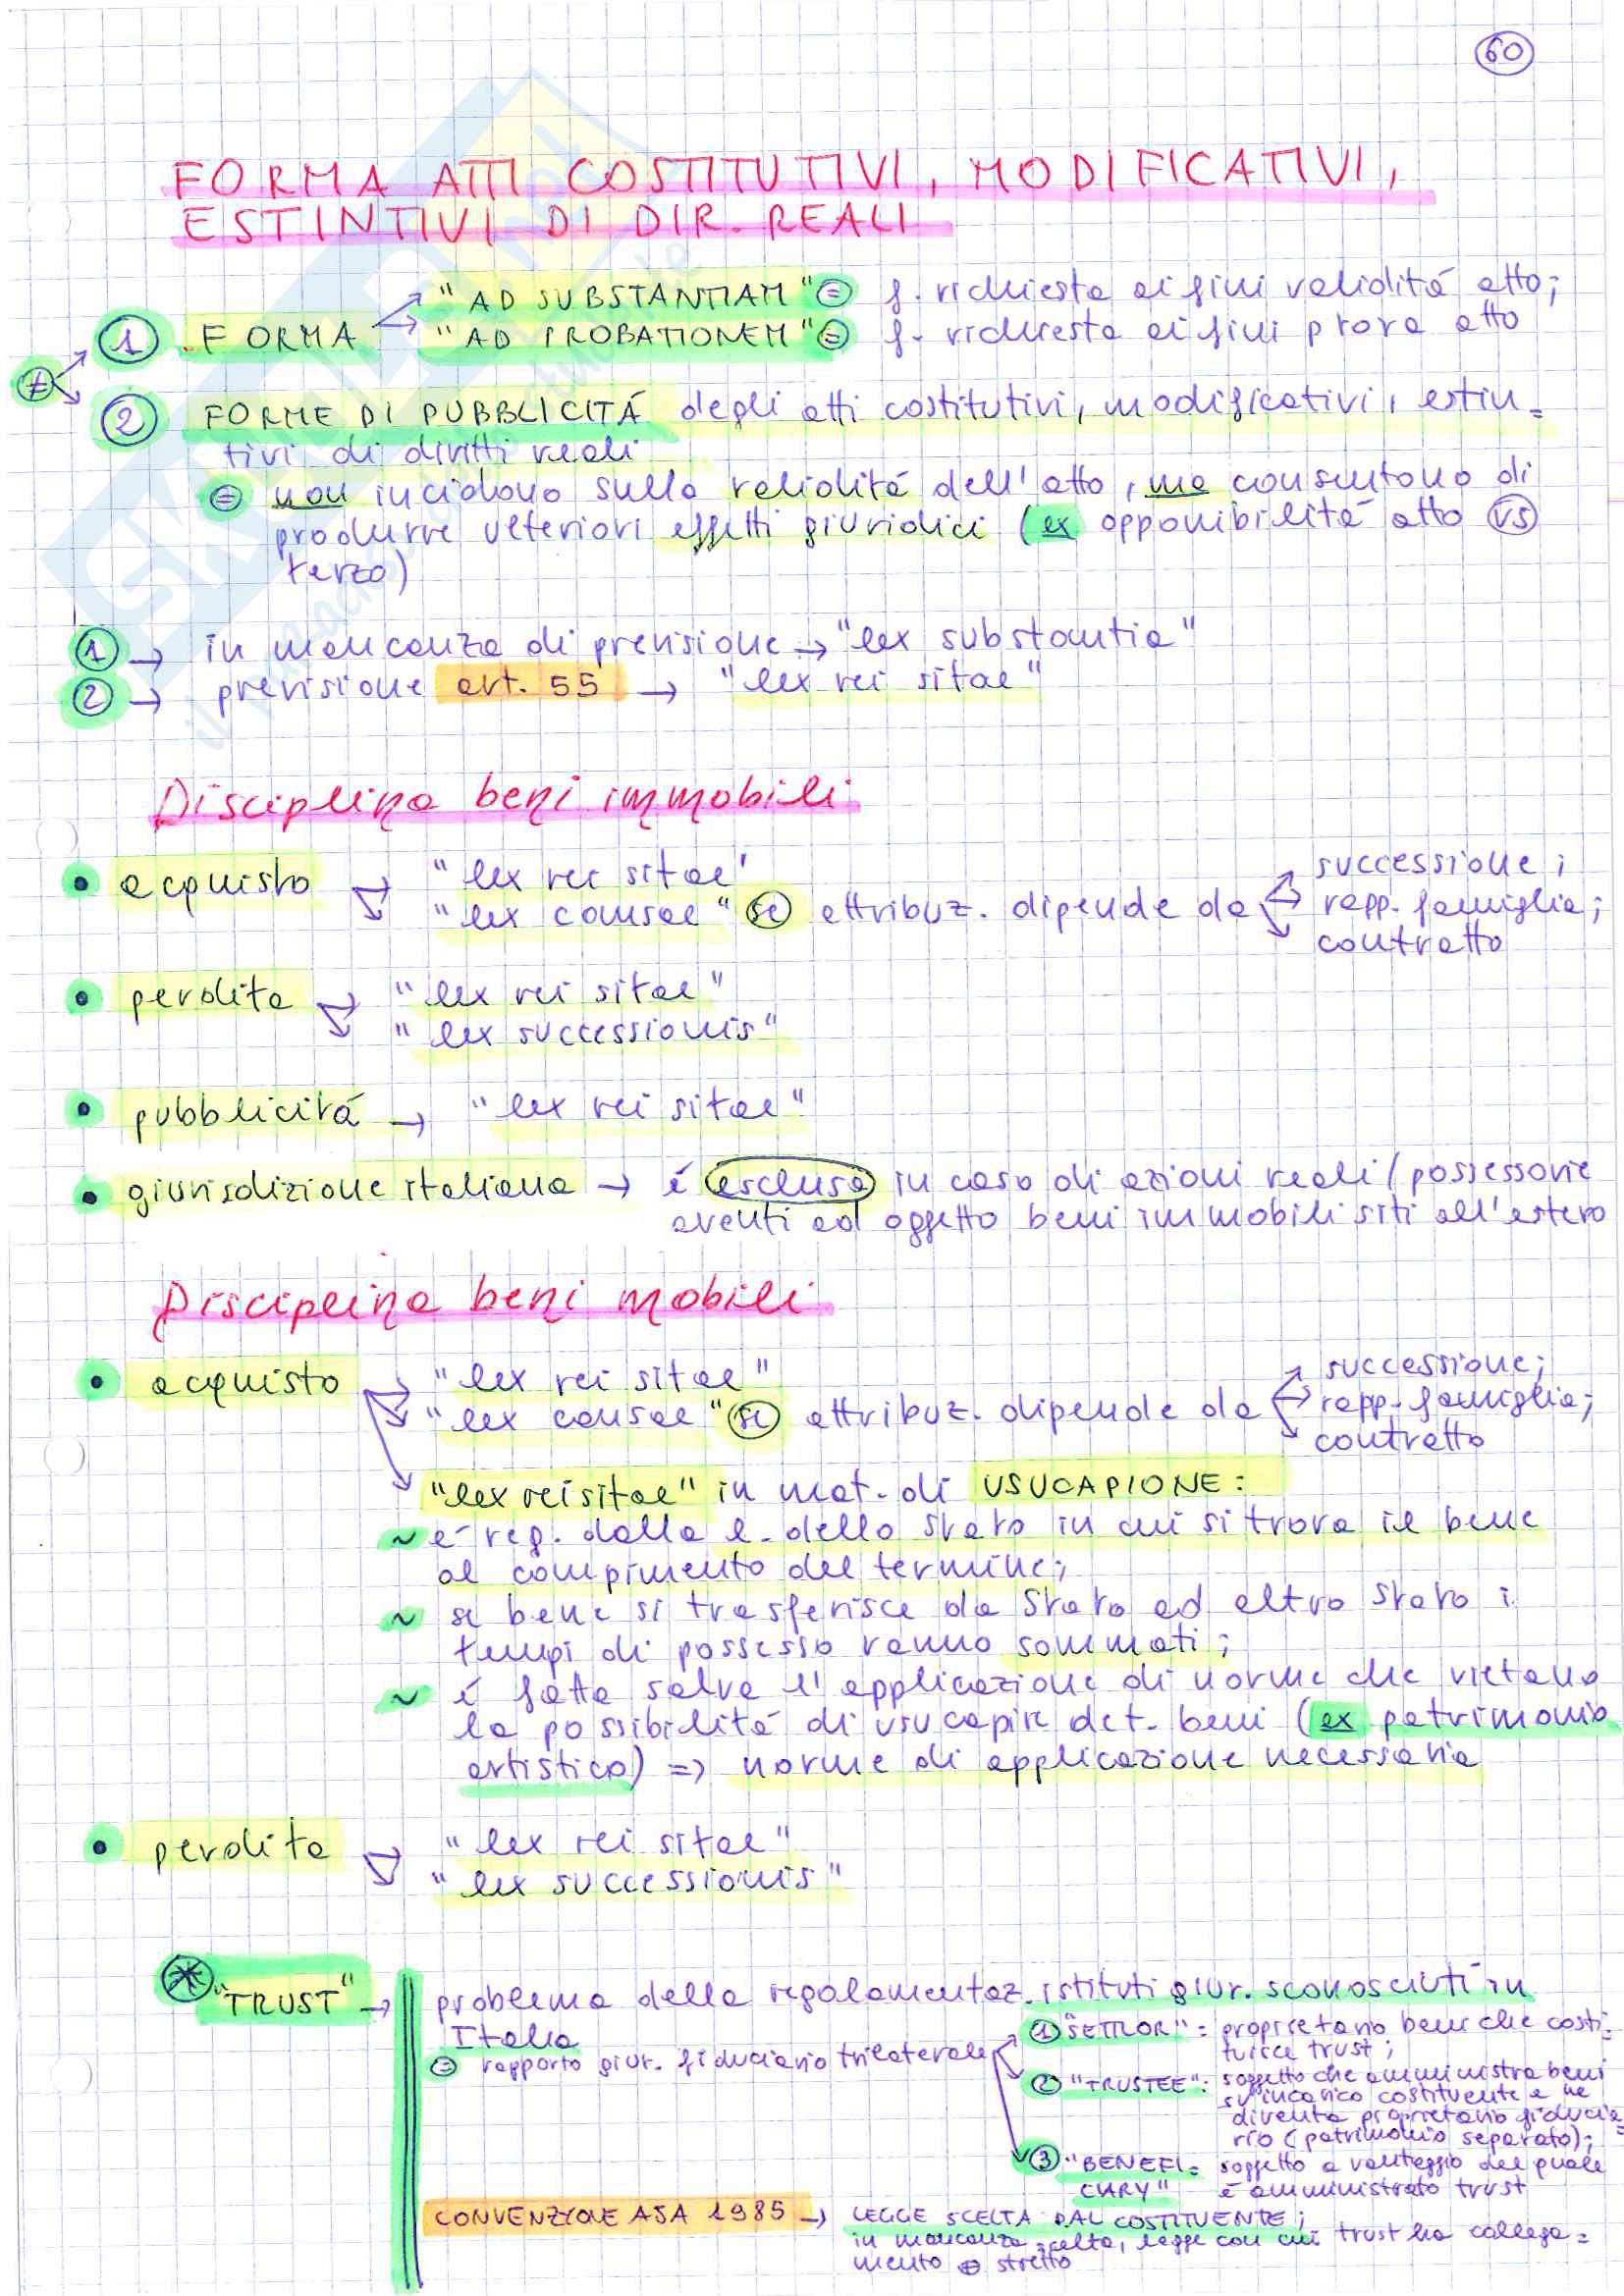 60
FORMA ATTI COSTITUTIVI, MODIFICATIVI,
ESTINTIVI DI DIR. REALI
≠
1 FORMA → "AD SUBSTANTIAM" = f. richiesta ai fini validitá atto;
→ "AD PROBATIONEM" = f. richiesta ai fini prova atto
2 FORME DI PUBBLICITÁ degli atti costitutivi, modificativi, estin=
tivi di diritti reali
= non incidono sulla validitá dell'atto, ma consentono di
produrre ulteriori effetti giuridici (ex opponibilitá atto VS
terzo)
1 → in mancanza di previsione → "lex substantia"
2 → previsione art. 55 → "lex rei sitae"
Disciplina beni immobili
• acquisto → "lex rei sitae'
→ "lex causae" se attribuz. dipende da → successione;
→ rapp. famiglia;
→ contratto
• perdita → "lex rei sitae"
→ "lex successionis"
• pubblicitá → "lex rei sitae"
• giurisdizione italiana → é esclusa in caso di azioni reali/possessorie
aventi ad oggetto beni immobili siti all'estero
Disciplina beni mobili
• acquisto → "lex rei sitae"
→ "lex causae" se attribuz. dipende da → successione;
→ rapp. famiglia;
→ contratto
→ "lex rei sitae" in mat. di USUCAPIONE:
~ é reg. dalla l. dello Stato in cui si trova il bene
al compimento del termine;
~ se bene si trasferisce da Stato ad altro Stato i
tempi di possesso vanno sommati;
~ é fatta salva l'applicazione di norme che vietano
la possibilitá di usucapire det. beni (ex patrimonio
artistico) => norme di applicazione necessaria
• perdita → "lex rei sitae"
→ "lex successionis"
* "TRUST" → problema della regolamentaz. istituti giur. sconosciuti in
Italia
= rapporto giur. fiduciario trilaterale
→ 1 "SETTLOR": proprietario beni che costi=
tuisce trust;
→ 2 "TRUSTEE": soggetto che amministra beni
su incarico costituente e ne
diventa proprietario fiducia=
rio (patrimonio separato);
→ 3 "BENEFI= soggetto a vantaggio del quale
CIARY" é amministrato trust
CONVENZIONE AJA 1985 → LEGGE SCELTA DAL COSTITUENTE;
in mancanza scelta, legge con cui trust ha collega=
mento + stretto